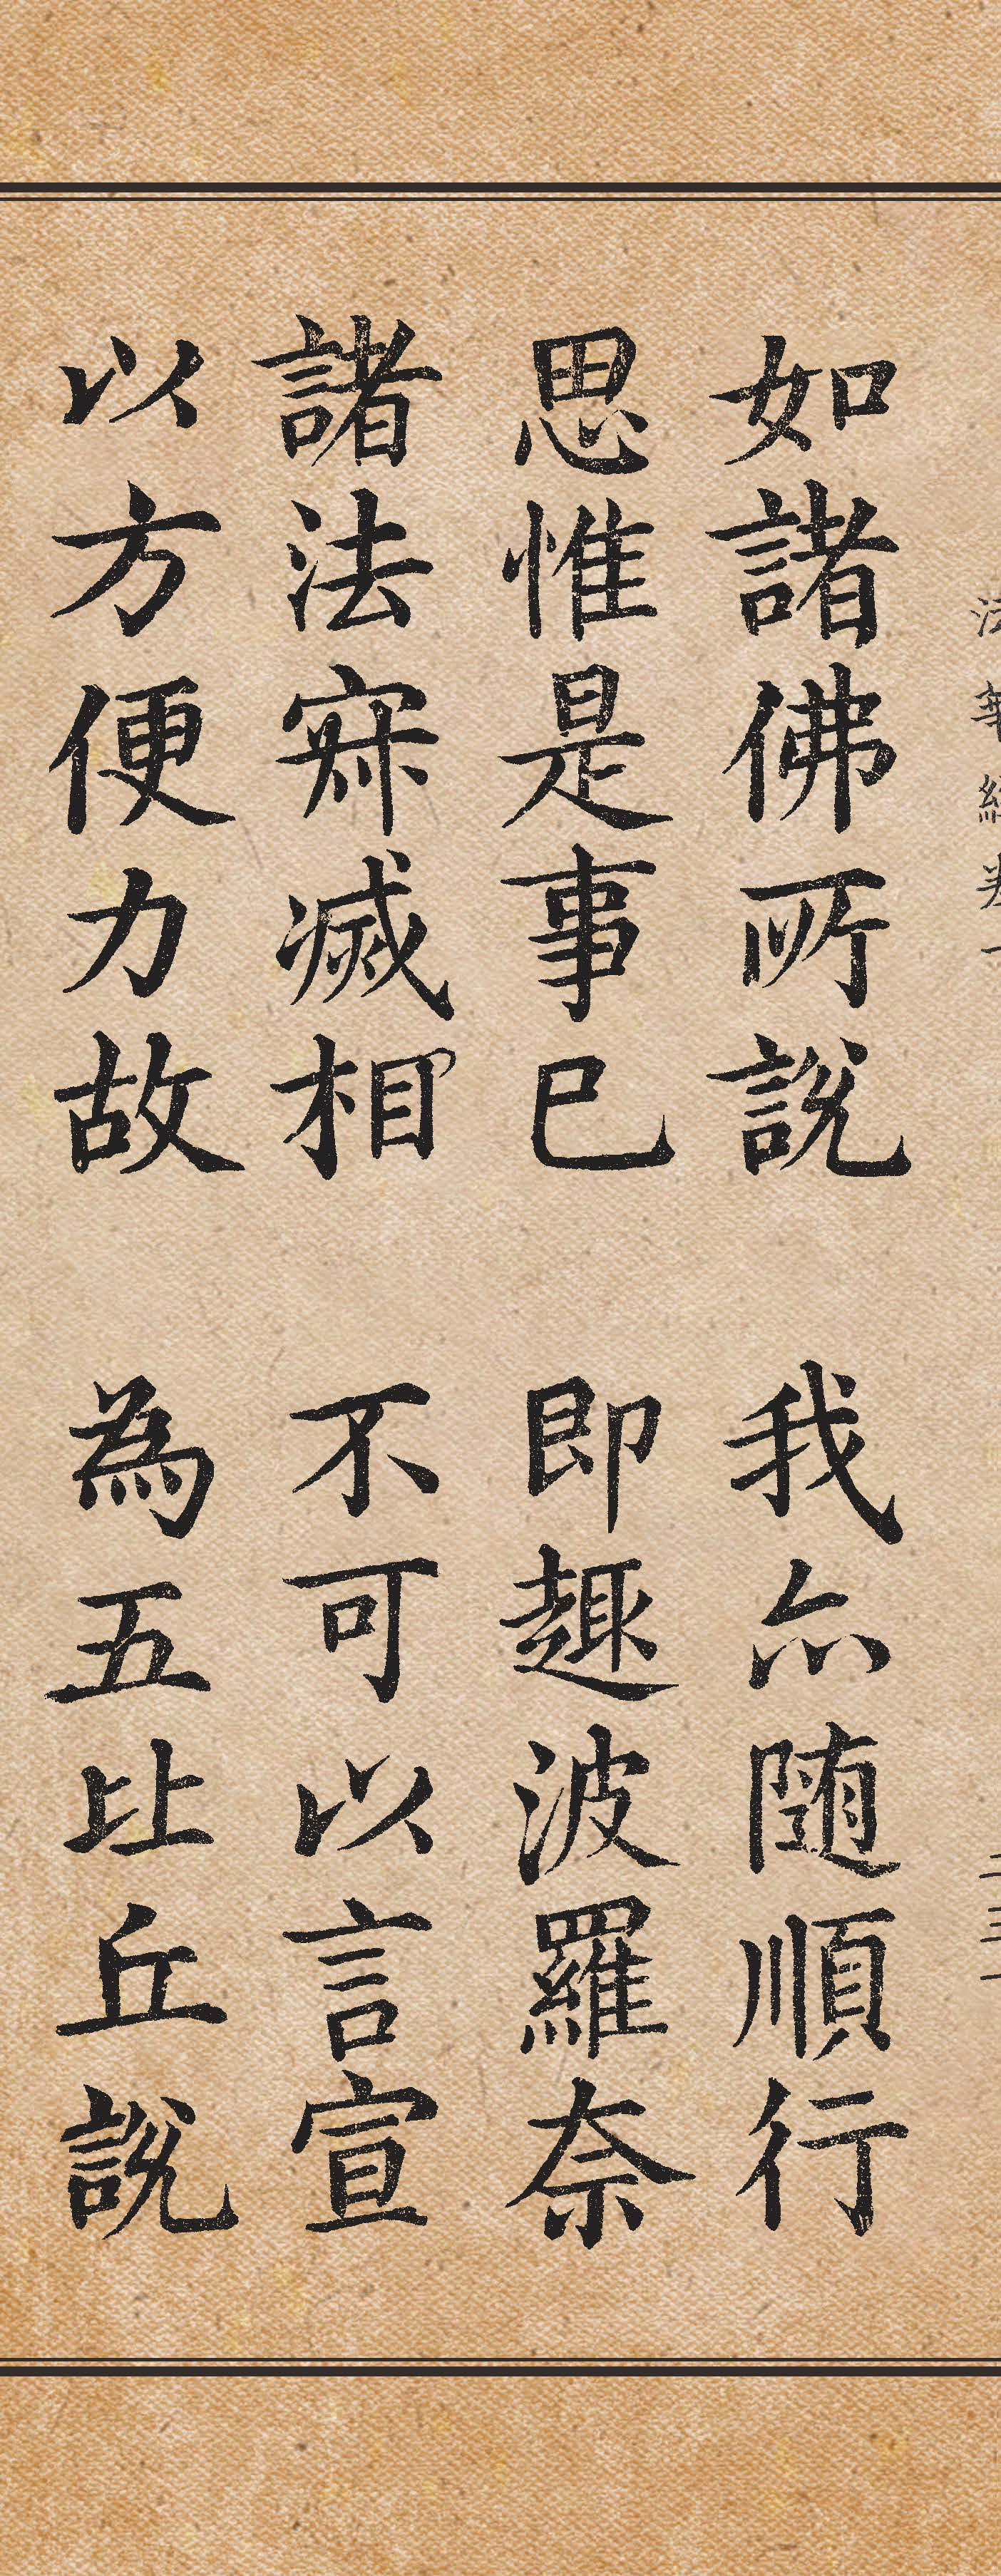 如諸佛所說　我亦随順行
思惟是事已　即趣波羅奈
諸法寂滅相　不可以言宣
以方便力故　為五比丘說